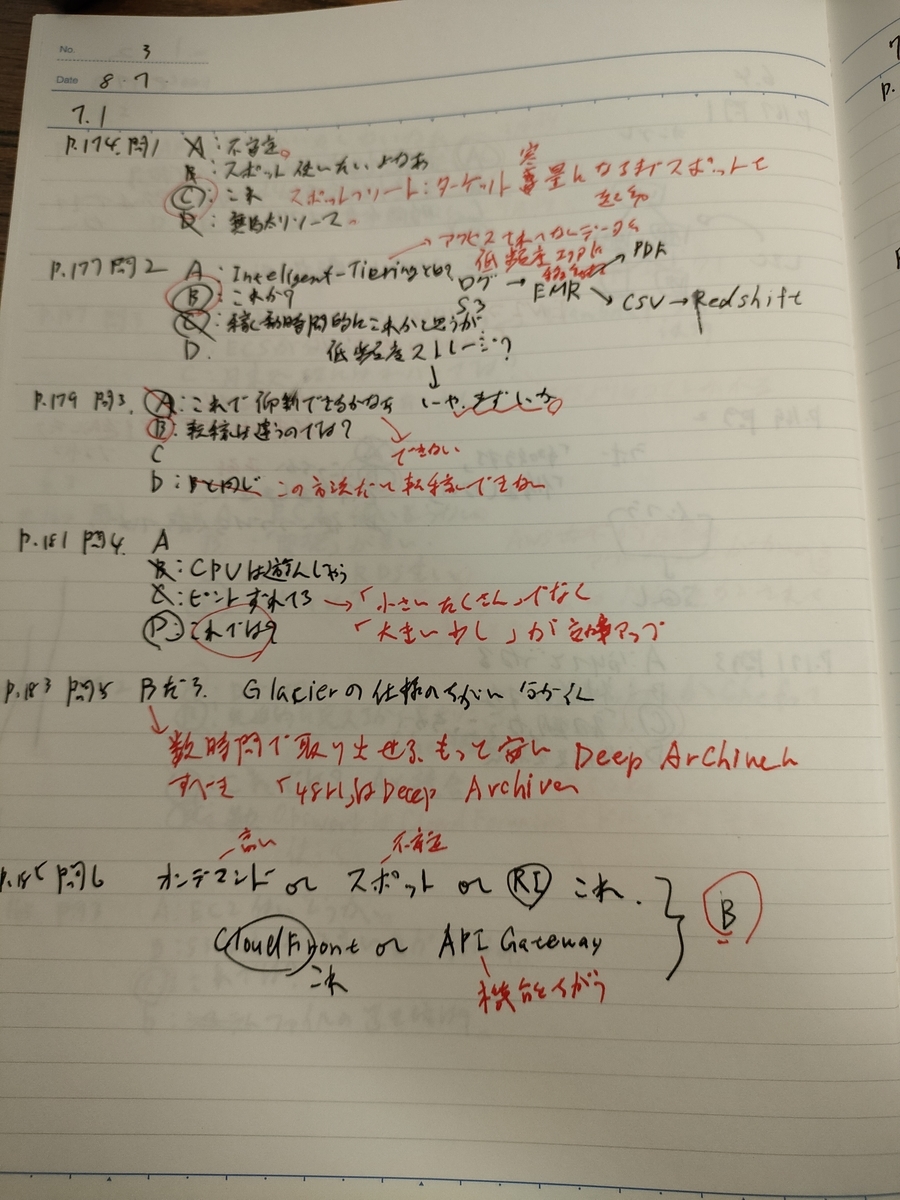 No. 3
Date 8・7
7.1
P.174 問1 A:不安定。
B:スポット使いたいよなあ
C:これ スポットフリート:ターゲット容量になるまでスポットで
D:無駄なリソース。
アクセスされないデータを
低頻度エリアに
P.177 問2 A:Inteligent-Tieringとは?
ログ → EMR → PDF
S3
CSV→Redshift
B:これか?
C:稼働時間的にこれかと思うが
D. 低頻度ストレージ?
P.179 問3. A:これで判断できるかなあ いや、きびしいか
B:転移は違うのでは?
できない
C
D:Bと同じ この方法だと転移できない
P.181 問4. A
B:CPUは遊んじゃう
C:ピントずれてる →「小さいたくさん」でなく
D:これでは? 「大きい少し」が効率アップ
P.183 問5 Bだろ. Glacierの仕様のちがい
数時間で取り出せる もって安い Deep Archive
「48H」はDeep Archive
高い 不安定
問6 オンデマンド or スポット or RI これ.
B
CloudFront or API Gateway
これ
機能ちがう